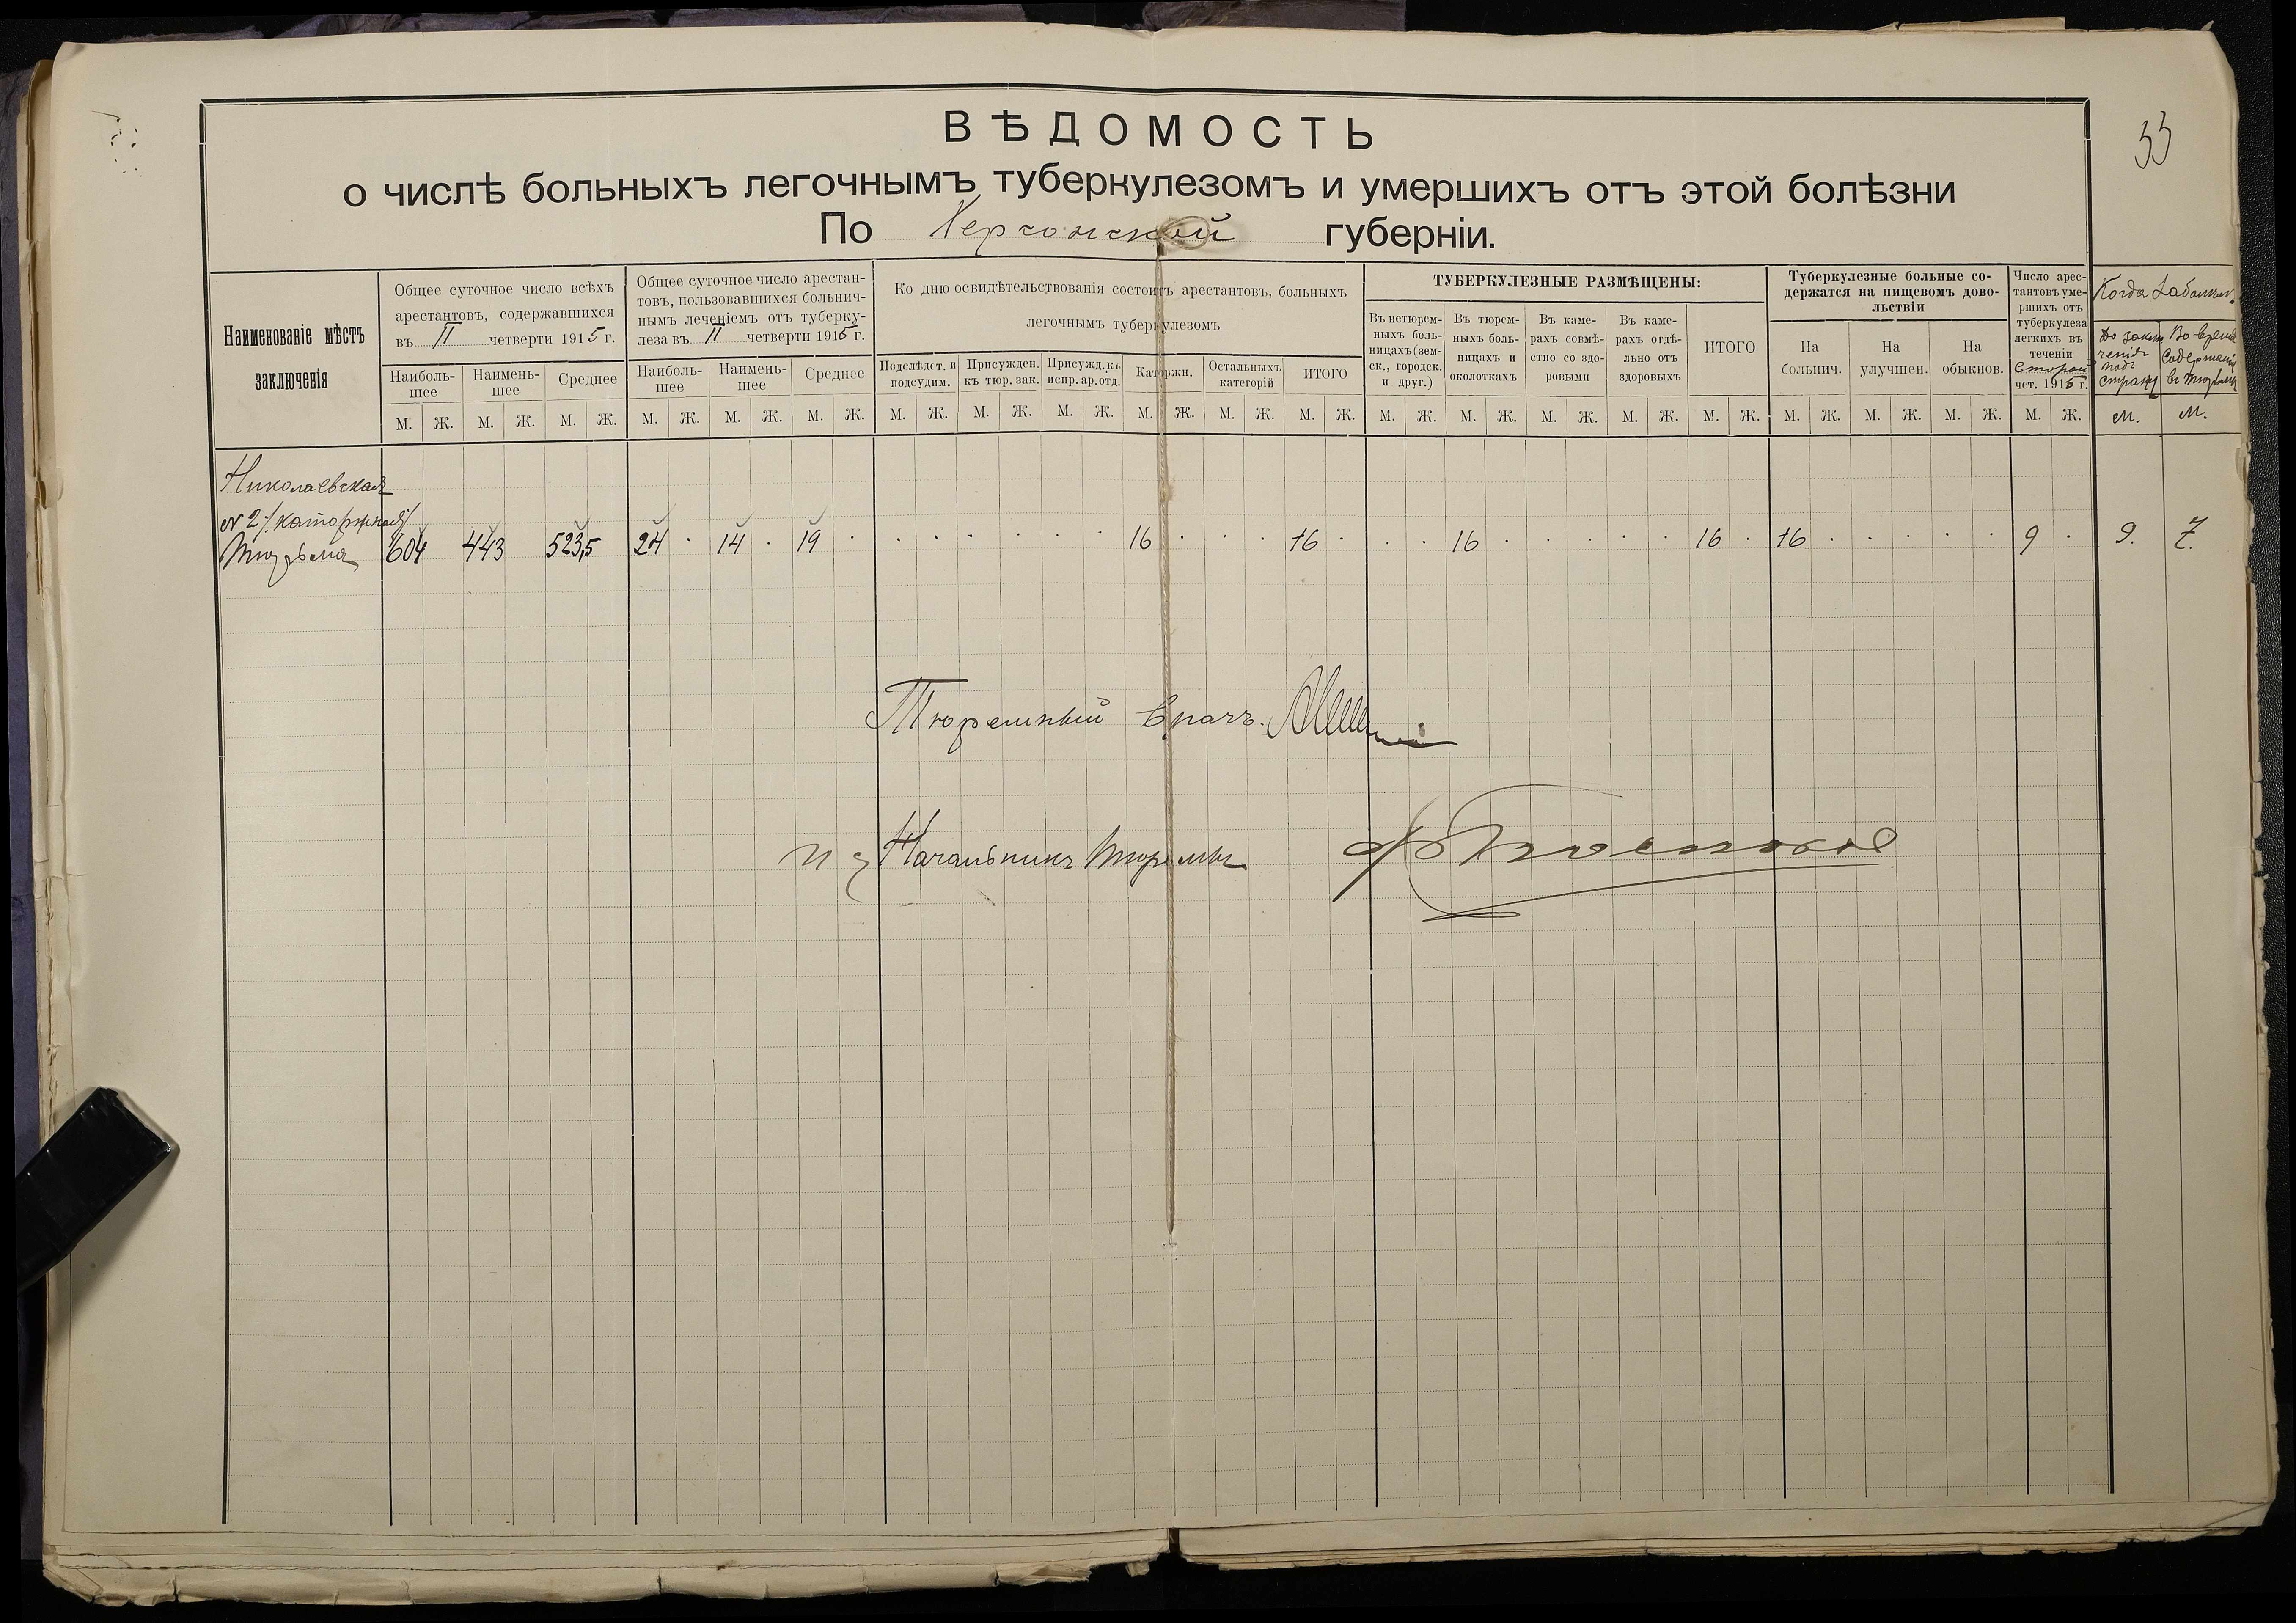 33
ВѢДОМОСТЬ
о числѣ больныхъ легочнымъ туберкулезомъ и умершихъ отъ этой болѣзни
По Херсонской губерніи.
Наименованіе мѣстъ
заключенія
Общее суточное число всѣхъ
арестантовъ, содержавшихся
въ II четверти 1915 г.
Наиболь-
шее
Наимень-
шее
Среднее
Общее суточное число арестан-
товъ, пользовавшихся больнич-
нымъ леченіемъ отъ туберку-
леза въ II четверти 1915 г.
Наиболь-
шее
Наимень-
шее
Среднее
Ко дню освидѣтельствованія состоитъ арестантовъ, больныхъ
легочнымъ туберкулезомъ
Подслѣдст. и
подсудим.
Присужден.
къ тюр. зак.
Присужд. къ
испр. ар. отд.
Каторжн.
Остальныхъ
категорій
ИТОГО
ТУБЕРКУЛЕЗНЫЕ РАЗМѢЩЕНЫ:
Въ нетюрем-
ныхъ боль-
ницахъ (зем-
ск., городск.
и друг.)
Въ тюрем-
ныхъ боль-
ницахъ и
околоткахъ
Въ каме-
рахъ совмѣ-
стно со здо-
ровыми
Въ каме-
рахъ отдѣ-
льно отъ
здоровыхъ
ИТОГО
Туберкулезные больные со-
держатся на пищевомъ дово-
льствіи
На
больнич.
На
улучшен.
На
обыкнов.
Число арес-
тантовъ уме-
ршихъ отъ
туберкулеза
легкихъ въ
теченіи
Второй
чет. 1915 г.
Когда заболѣли
До заклю
ченія
подъ
стражу
Во время
содержанія
въ тюрьмѣ
М. Ж. М. Ж. М. Ж. М. Ж. М. Ж. М. Ж. М. Ж. М. Ж. М. Ж. М. Ж. М. Ж. М. Ж. М. Ж. М. Ж. М. Ж. М. Ж. М. Ж. М. Ж. М. Ж. М. Ж. М. Ж. М. М.
Николаевская
№ 2 /каторжная/
Тюрьма 604 443 523,5 24 · 14 · 19 · · · · · · · 16 · · · 16 · · · 16 · · · · · 16 · 16 · · · · · 9 · 9. 7.
Тюремный врачъ.
И д Начальника Тюрьмы